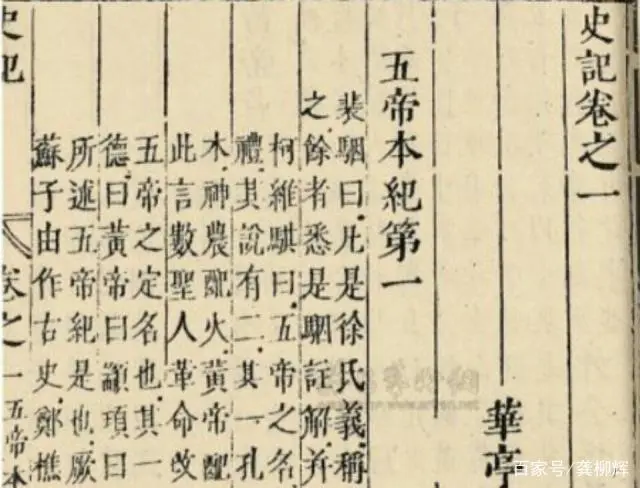 史記卷之一
華亭
五帝本紀第一
裴駰曰凡是徐氏義稱
之餘者悉是駰註解并
柯維騏曰五帝之名
禮其說有二其一孔
木神農配火黃帝配
此言數聖人革命改
五帝之定名也其一
德曰黃帝曰顓頊曰
所述五帝紀是也厥
蘇子由作古史鄭樵
史記
卷之一
五帝本
百家号/龚柳辉